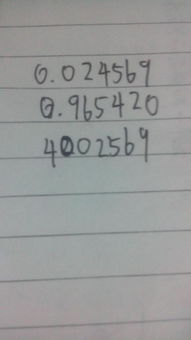 0.024569
0.965420
4002569